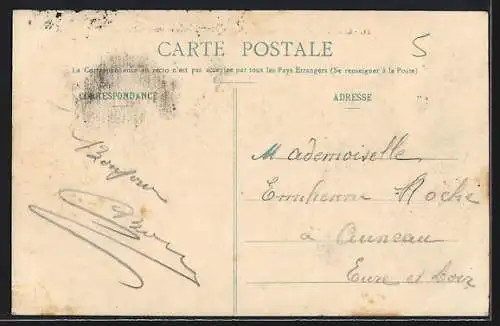 CARTE POSTALE
5
La Correspondance au recto n'est pas acceptée par tous les Pays Etrangers (Se renseigner à la Poste)
CORRESPONDANCE
ADRESSE
Bonjour
Mademoiselle
Roche
à Auneau
Eure et Loir